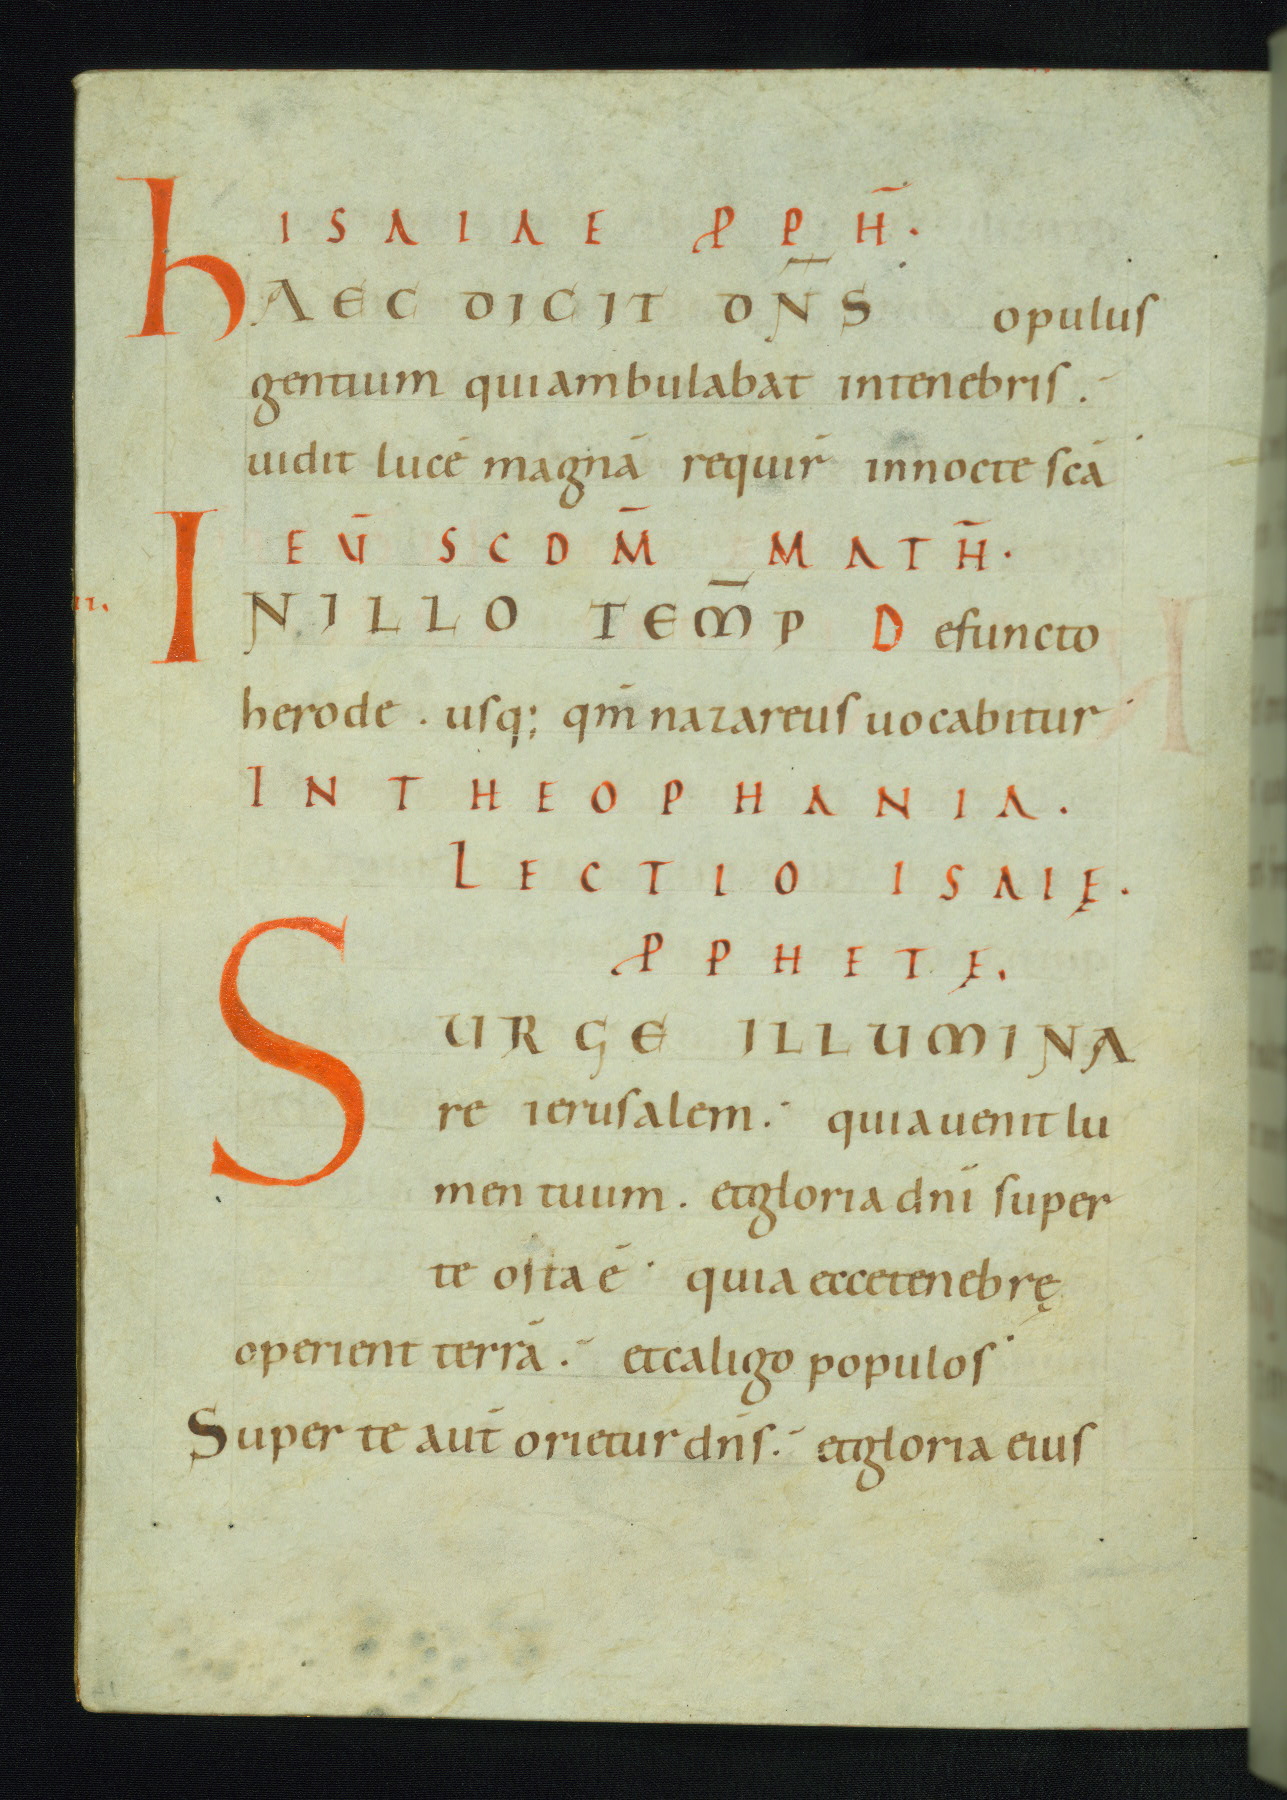 ISAIAE ꝓPH̄.
HAEC DICIT DN̄S opulus
gentium quiambulabat intenebris.
uidit lucē magnā requir̄ innocte scā
EŪ SCDM̄ MATH̄.
II. INILLO TEM̄P Defuncto
herode . usq; qm̄ nazareus uocabitur
IN THEOPHANIA.
LECTIO ISAIĘ.
ꝓPHETĘ.
SURGE ILLUMINA
re ierusalem. quiauenit lu
men tuum. etgloria dnī super
te orta ē quia eccetenebrę
operient terrā. etcaligo populos
Super te aut̄ orietur dn̄s. etgloria eius